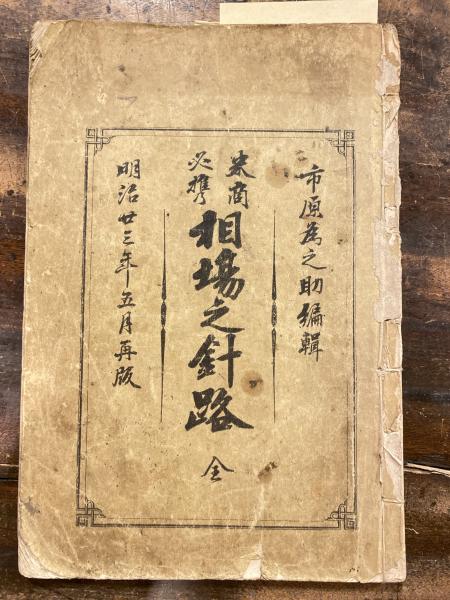 市原為之助編輯
米商
必携
相場之針路
全
明治廿三年五月再版